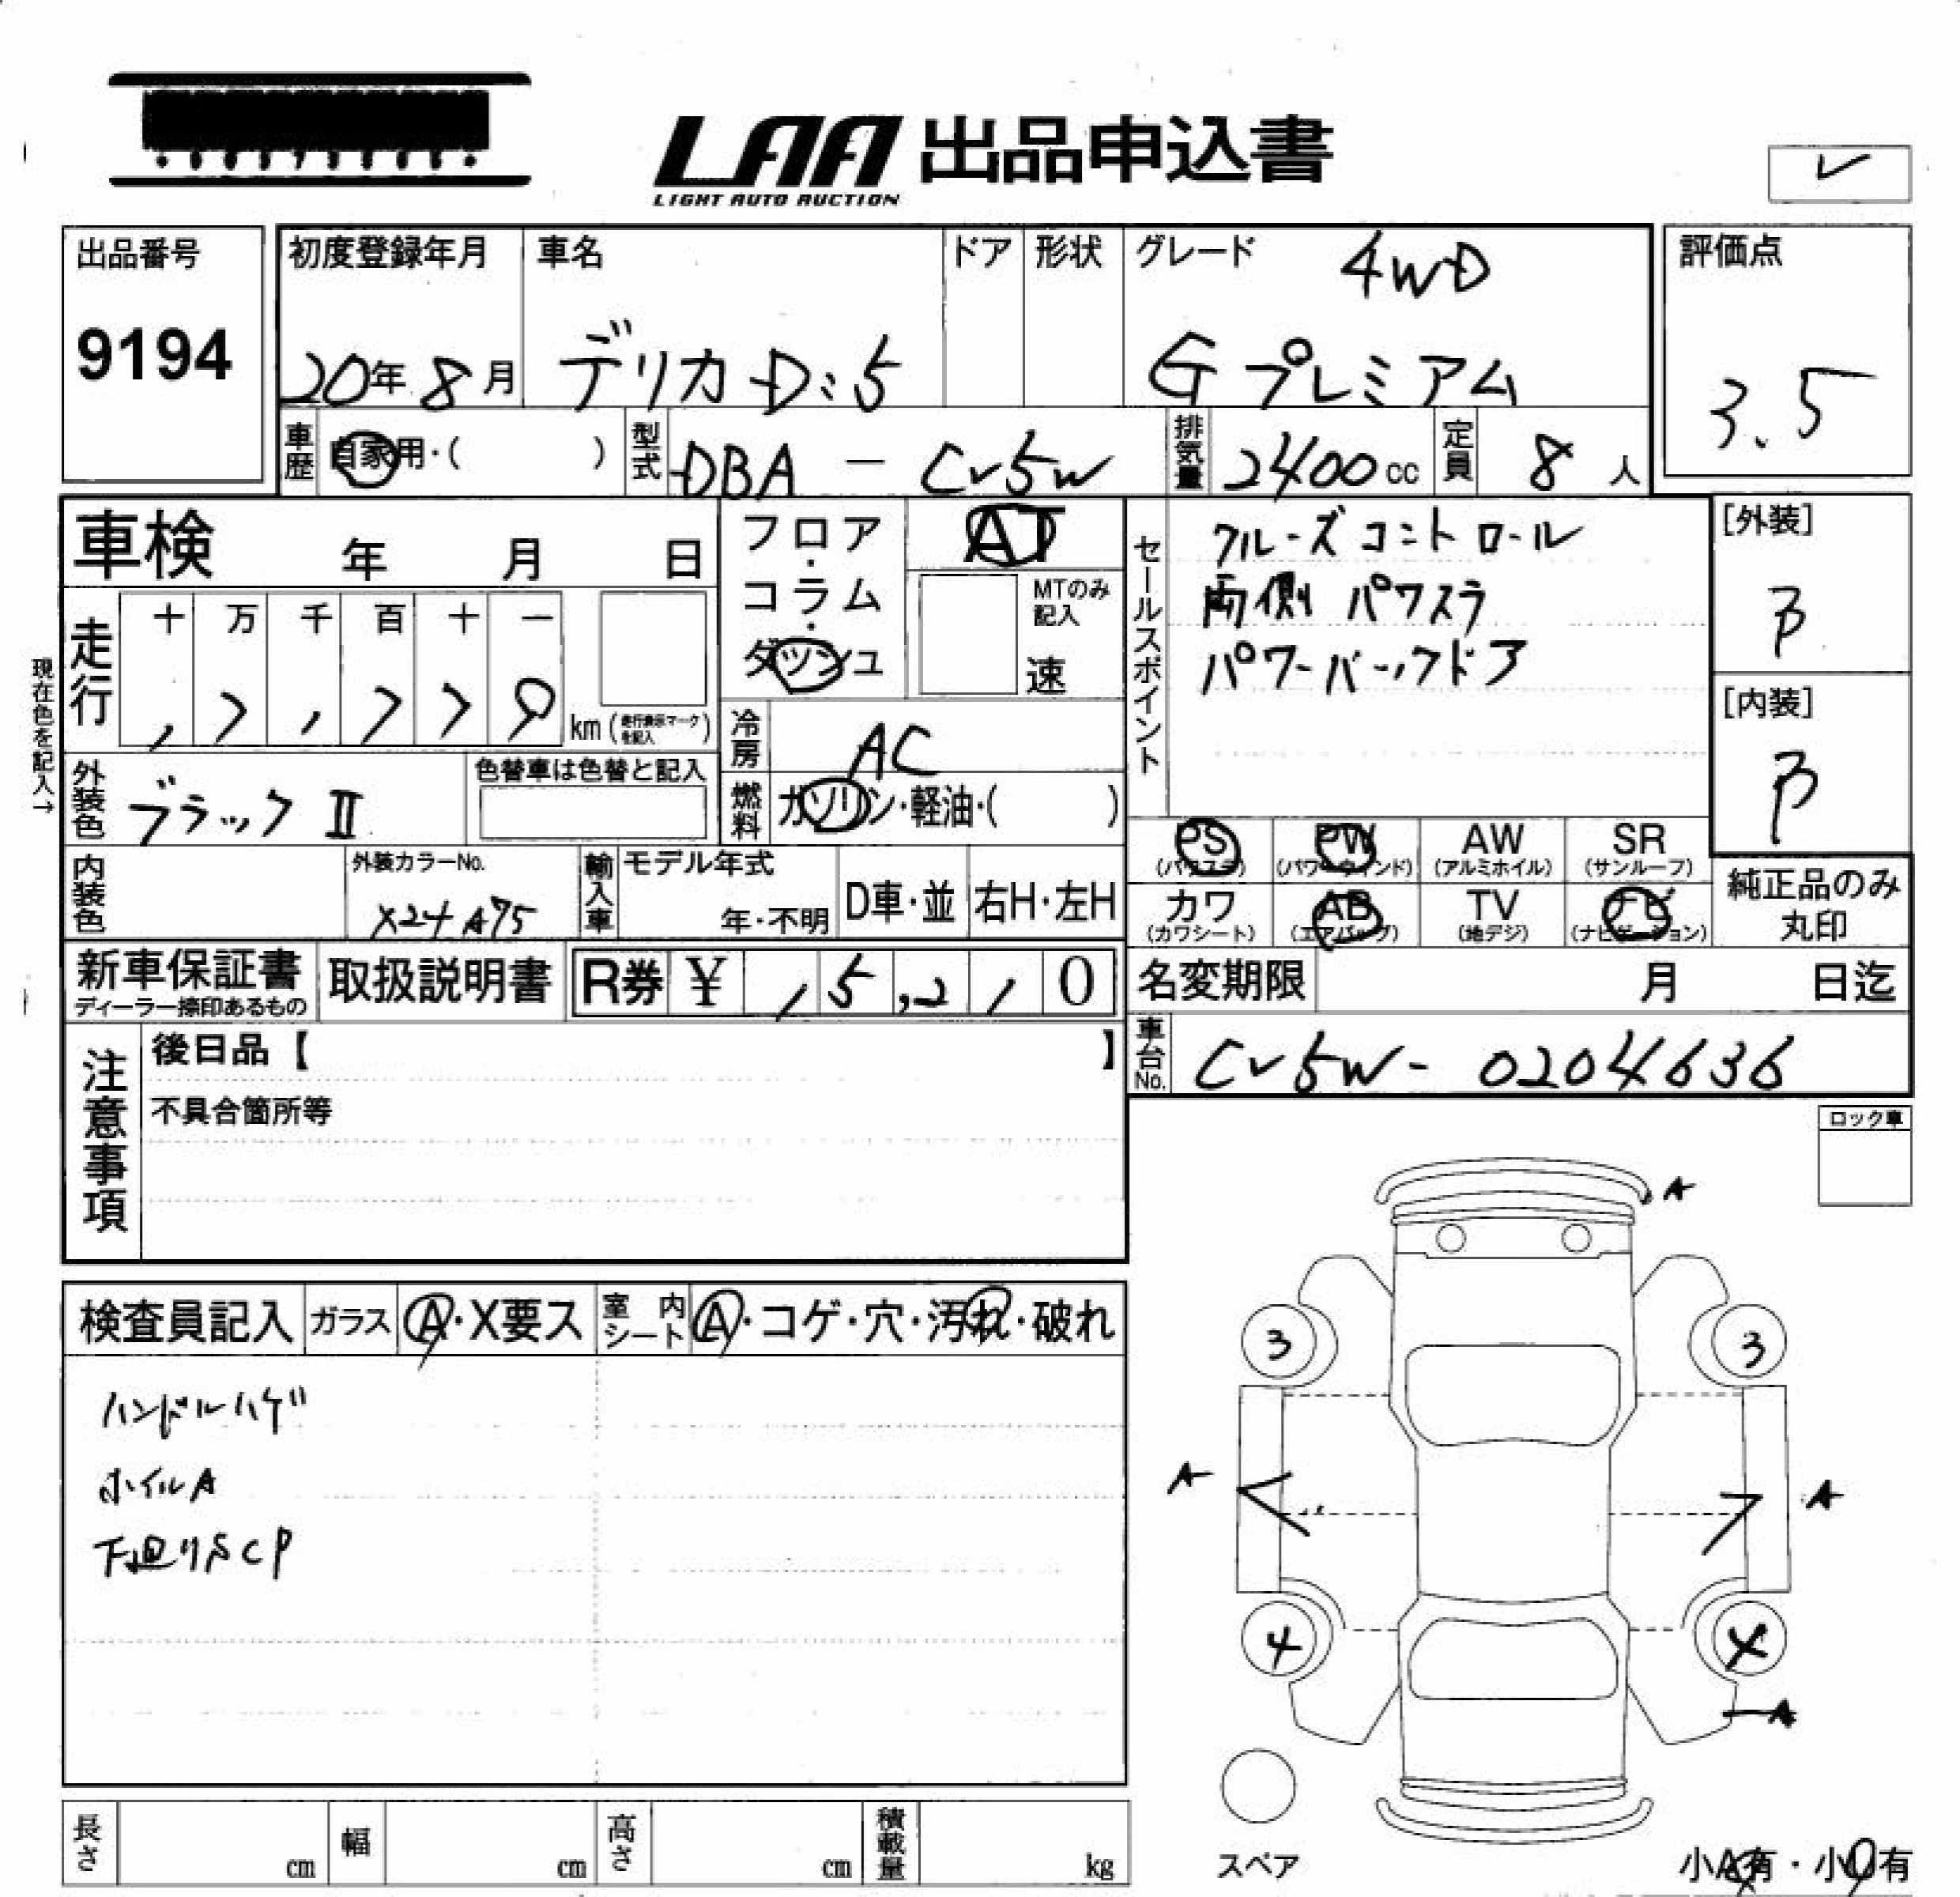 LAA 出品申込書
LIGHT AUTO AUCTION
レ
出品番号
9194
初度登録年月
20年 8月
車名
デリカ D:5
ドア
形状
グレード
4WD
G プレミアム
評価点
3.5
車歴
自家用・( )
型式
DBA - CV5W
排気量
2400cc
定員
8人
車検 年 月 日
フロア・コラム・ダッシュ
AT
MTのみ記入
速
セールスポイント
クルーズコントロール
両側パワスラ
パワーバックドア
[外装]
B
[内装]
B
現在色を記入→
走行
十 万 千 百 十 一
km (走行表示マークを記入)
冷房
AC
燃料
ガソリン・軽油・( )
外装色
ブラックⅡ
色替車は色替と記入
内装色
外装カラーNo.
X24 A75
輸入車
モデル年式
年・不明
D車・並
右H・左H
PS (パワステ)
PW (パワーウィンド)
AW (アルミホイル)
SR (サンルーフ)
カワ (カワシート)
AB (エアバッグ)
TV (地デジ)
ナビ (ナビゲーション)
純正品のみ丸印
新車保証書
ディーラー捺印あるもの
取扱説明書
R券 ¥ 15,210
名変期限 月 日迄
車台No.
CV5W- 0204636
注意事項
後日品【 】
不具合箇所等
ロック車
検査員記入
ガラス
A・X要ス
室内シート
A・コゲ・穴・汚れ・破れ
ハンドルハゲ
ホイルA
下廻りSCP
A
3
3
A
A
4
A
スペア
小A有・小U有
長さ cm
幅 cm
高さ cm
積載量 kg